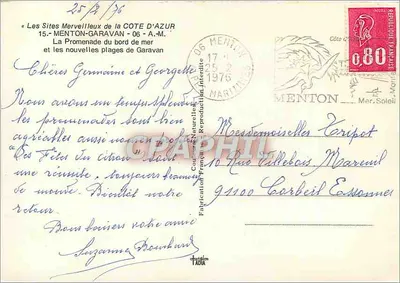 25/2/76
« Les Sites Merveilleux de la COTE D'AZUR
15.- MENTON-GARAVAN - 06 - A.-M.
La Promenade du bord de mer
et les nouvelles plages de Garavan
06 MENTON
17 H
25 - 2
1976
MARITIMES
MENTON
Côte d'
Mer. Soleil
0,80
Chères Germaine et Georgette
Nous avons un temps splendide
les promenades sont bien
agréables aussi
Les Fêtes du citron
une réussite. toujours beaucoup
de monde. Bientôt notre
retour.
Bons baisers votre amie
Suzanne Bouchard
Mesdemoiselles Tripot
10 Rue Villebois Mareuil
91100 Corbeil Essonnes
CARPHTI
Fabrication Française